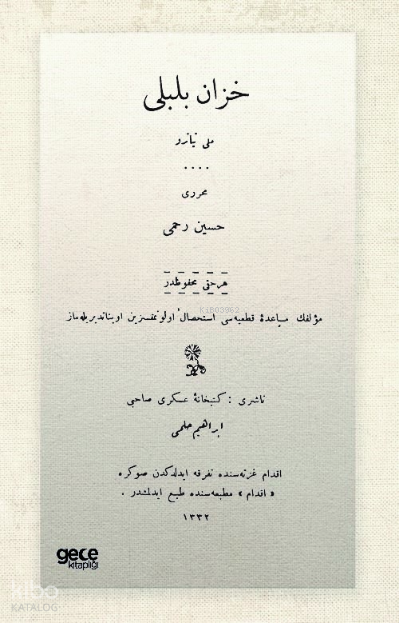 خزان بلبلی
ملی تیاترو
محرری
حسین رحمی
هر حقی محفوظدر
مؤلفك مساعدهٔ قطعیه‌سی استحصال اولونمقسزین اویناتدیریله‌ماز
ناشری : كتبخانهٔ عسكری صاحبی
ابراهیم حلمی
اقدام غزته‌سنده تفرقه ایدلدكدن صوكره
« اقدام » مطبعه‌سنده طبع ایدلمشدر .
١٣٣٢
gece
kitaplığı
kibo
KATALOG